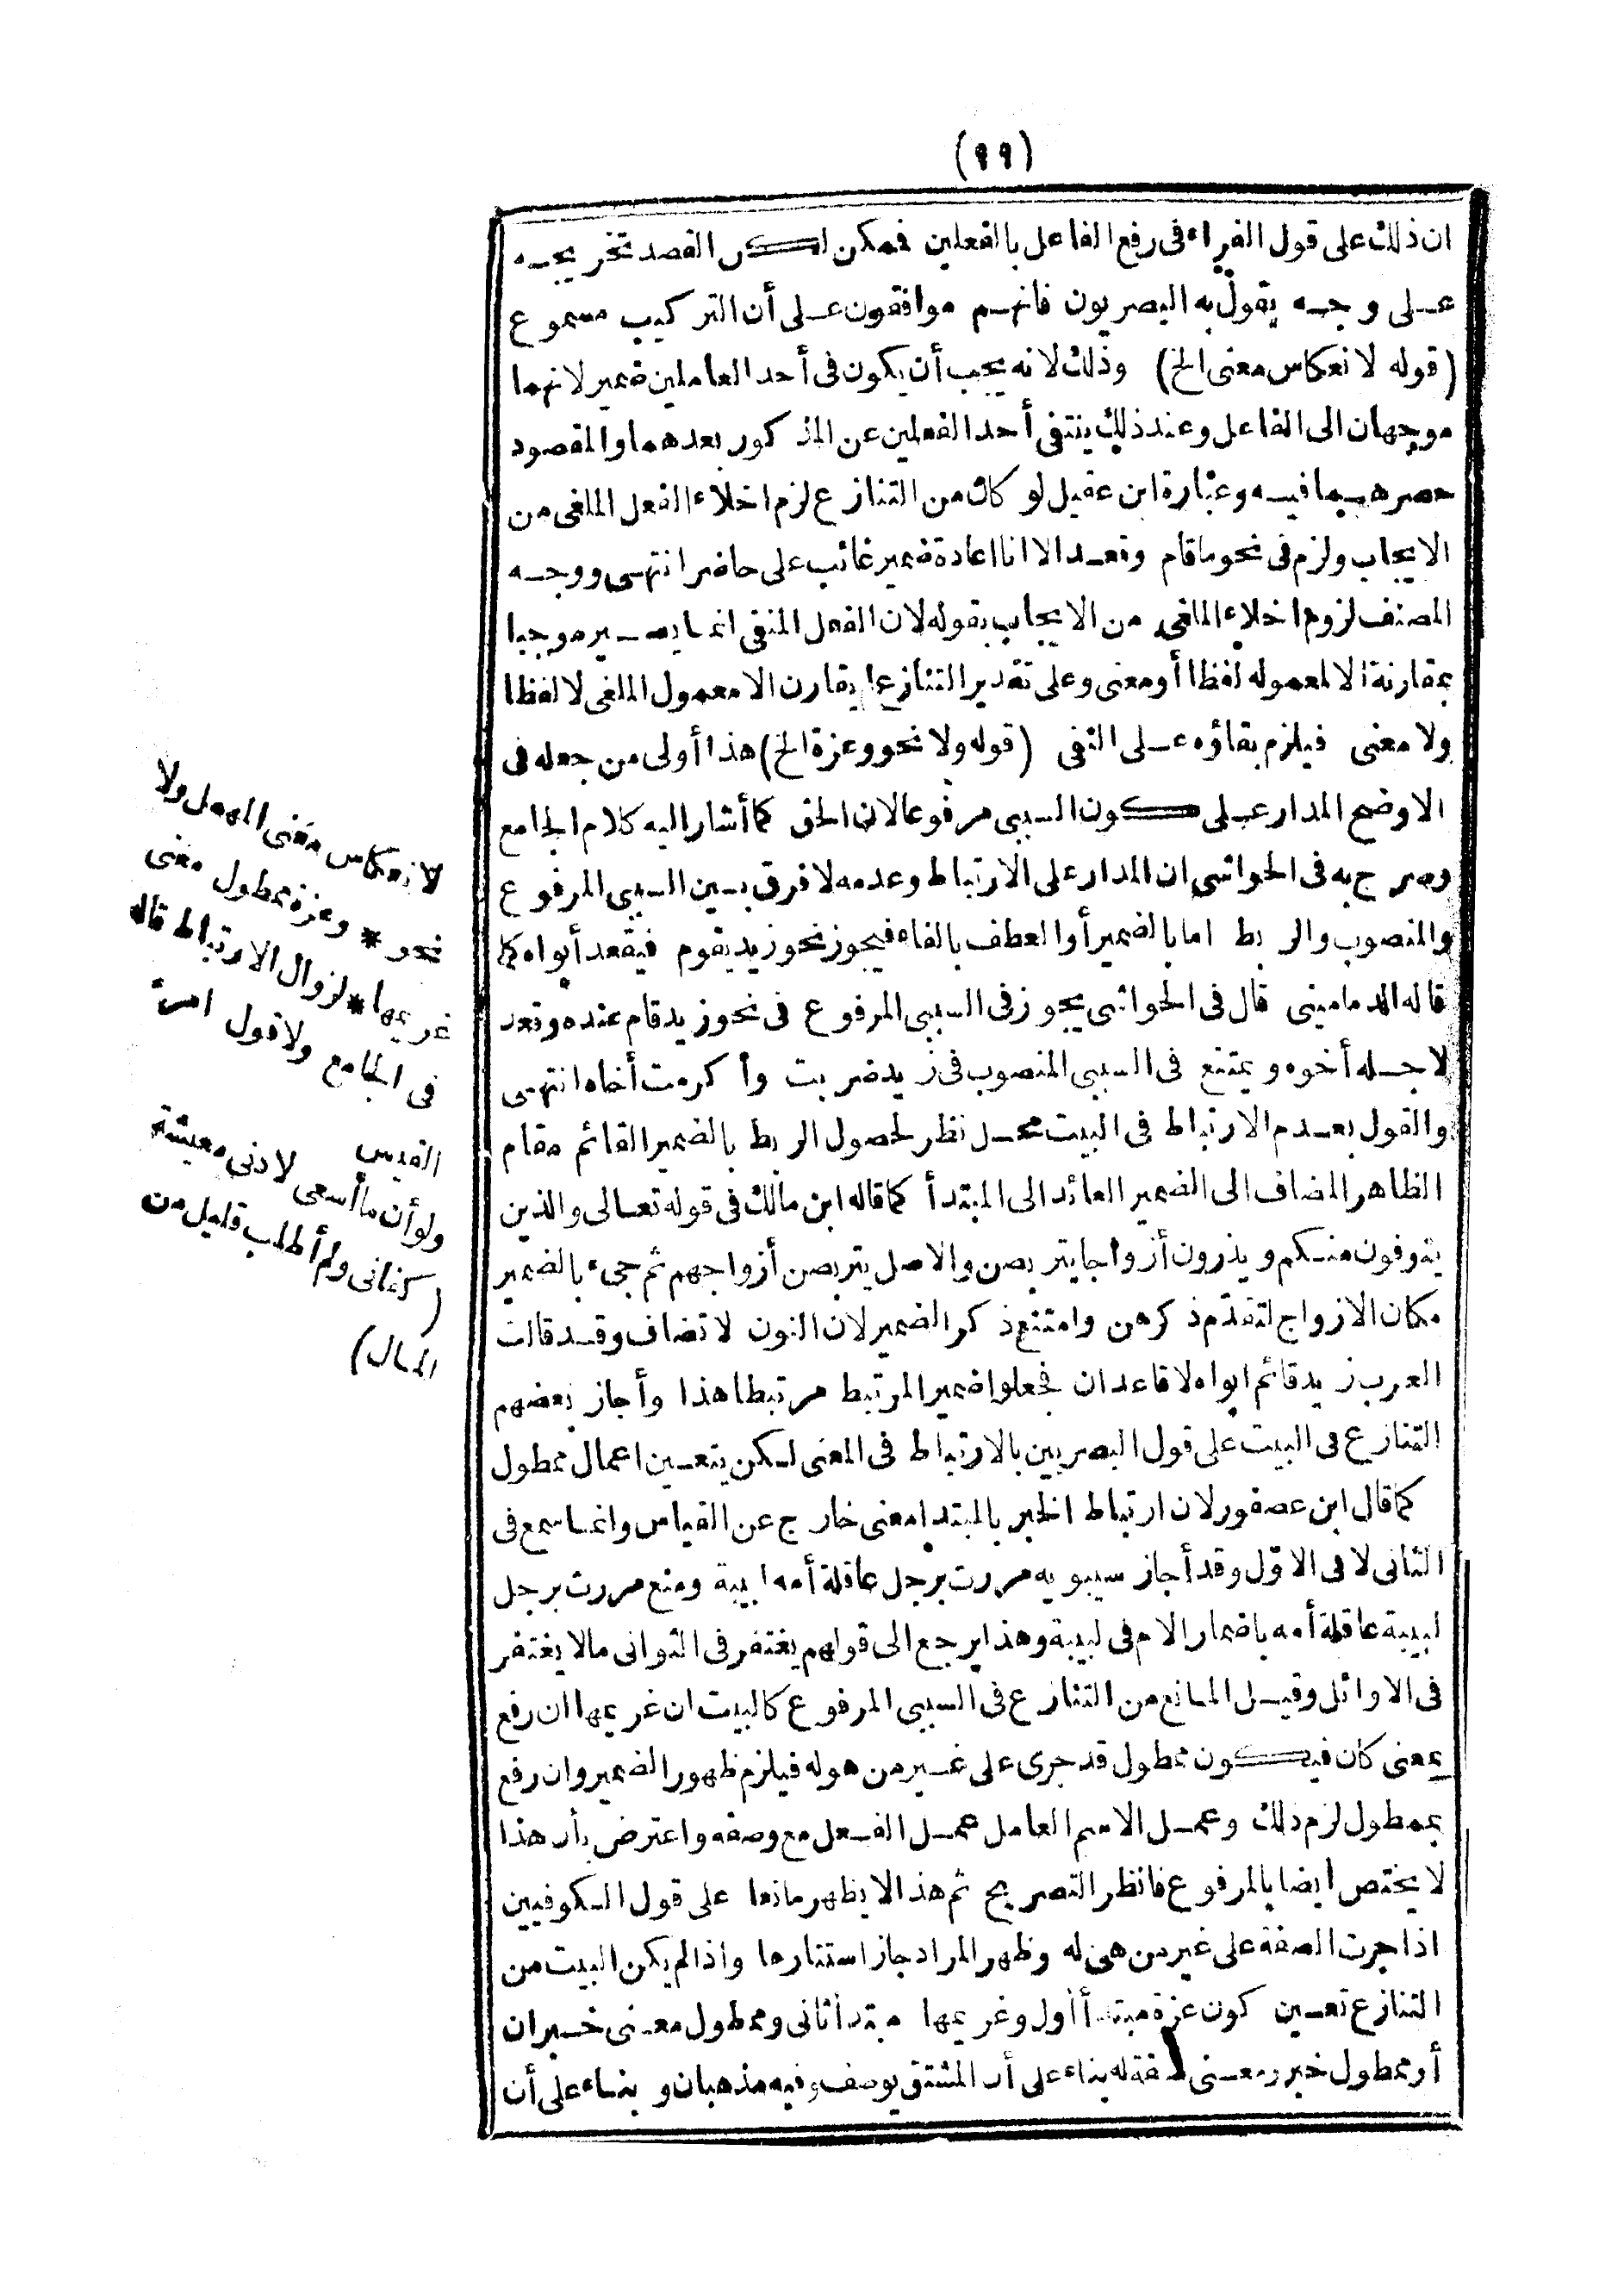 (٩٩)
ان ذلك على قول الفراء فى رفع الفاعل بالفعلين فممكن لكن القصد تخريجه
على وجه يقول به البصريون فانهم موافقون على أن التركيب مسموع
(قوله لانعكاس معنى الخ) وذلك لانه يجب أن يكون فى أحد العاملين ضمير لانهما
موجهان الى الفاعل وعند ذلك ينتفى أحد الفعلين عن المذكور بعدهما والمقصود
حصرهما فيه وعبارة ابن عقيل لو كان من التنازع لزم اخلاء الفعل الملغى من
الايجاب ولزم فى نحو ماقام وقعد الا انا اعادة ضمير غائب على حاضر انتهى ووجه
المصنف لزوم اخلاء الملغى من الايجاب بقوله لان الفعل المنفى انما يصير موجبا
بمقارنة الا لمعموله لفظا أو معنى وعلى تقدير التنازع لم يقارن الا معمول الملغى لا لفظا
ولا معنى فيلزم بقاؤه على النفى (قوله ولا نحو وعزة الخ) هذا أولى من جعله فى
الاوضح المدار على كون السببى مرفوعا لان الحق كما أشار اليه كلام الجامع
وصرح به فى الحواشى ان المدار على الارتباط وعدمه لا فرق بين السببى المرفوع
والمنصوب والربط اما بالضمير أو العطف بالفاء فيجوز نحو زيد يقوم فيقعد أبواه كما
قاله الدمامينى قال فى الحواشى يجوز فى السببى المرفوع فى نحو زيد قام عنده وقعد
لاجله أخوه ويمتنع فى السببى المنصوب فى زيد ضربت وأكرمت أخاه انتهى
والقول بعدم الارتباط فى البيت محل نظر لحصول الربط بالضمير القائم مقام
الظاهر المضاف الى الضمير العائد الى المبتدأ كما قاله ابن مالك فى قوله تعالى والذين
يتوفون منكم ويذرون أزواجا يتربصن والاصل يتربصن أزواجهم ثم جىء بالضمير
مكان الازواج لتقدّم ذكرهن وامتنع ذكر الضمير لان النون لا تضاف وقد قالت
العرب زيد قائم ابواه لا قاعدان فجعلوا ضمير المرتبط مرتبطا هذا وأجاز بعضهم
التنازع فى البيت على قول البصريين بالارتباط فى المعنى لكن يتعين اعمال ممطول
كما قال ابن عصفور لان ارتباط الخبر بالمبتدا معنى خارج عن القياس وانما سمع فى
الثانى لا فى الاوّل وقد أجاز سيبويه مررت برجل عاقلة أمه لبيبة ومنع مررت برجل
لبيبة عاقلة أمه باضمار الام فى لبيبة وهذا يرجع الى قولهم يغتفر فى الثوانى مالا يغتفر
فى الاوائل وقيل المانع من التنازع فى السببى المرفوع كالبيت ان غريمها ان رفع
بمعنى كان فيكون ممطول قد جرى على غير من هو له فيلزم ظهور الضمير وان رفع
بممطول لزم ذلك وعمل الاسم العامل عمل الفعل مع وصفه واعترض بأن هذا
لا يختص ايضا بالمرفوع فانظر التصريح ثم هذا لا يظهر مانعا على قول الكوفيين
اذا جرت الصفة على غير من هى له وظهر المراد جاز استتارها واذا لم يكن البيت من
التنازع تعين كون عزة مبتدأ أول وغريمها مبتدأ ثانى وممطول معنى خبران
أو ممطول خبر ومعنى صفة له بناء على أن المشتق يوصف وفيه مذهبان وبناء على أن
لانعكاس معنى المهمل ولا
نحو * وعزة ممطول معنى
غريمها * لزوال الارتباط قاله
فى الجامع ولا قول امرئ
القيس
ولو أن ما أسعى لادنى معيشة
(كفانى ولم أطلب قليل من
المال)